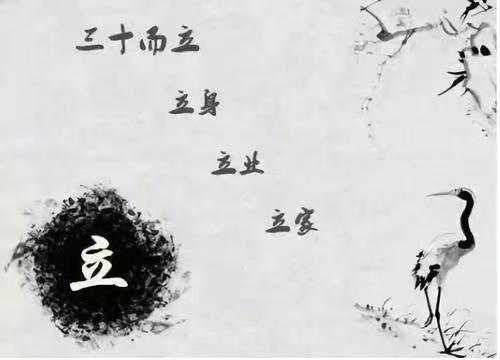 三十而立
立身
立业
立家
立